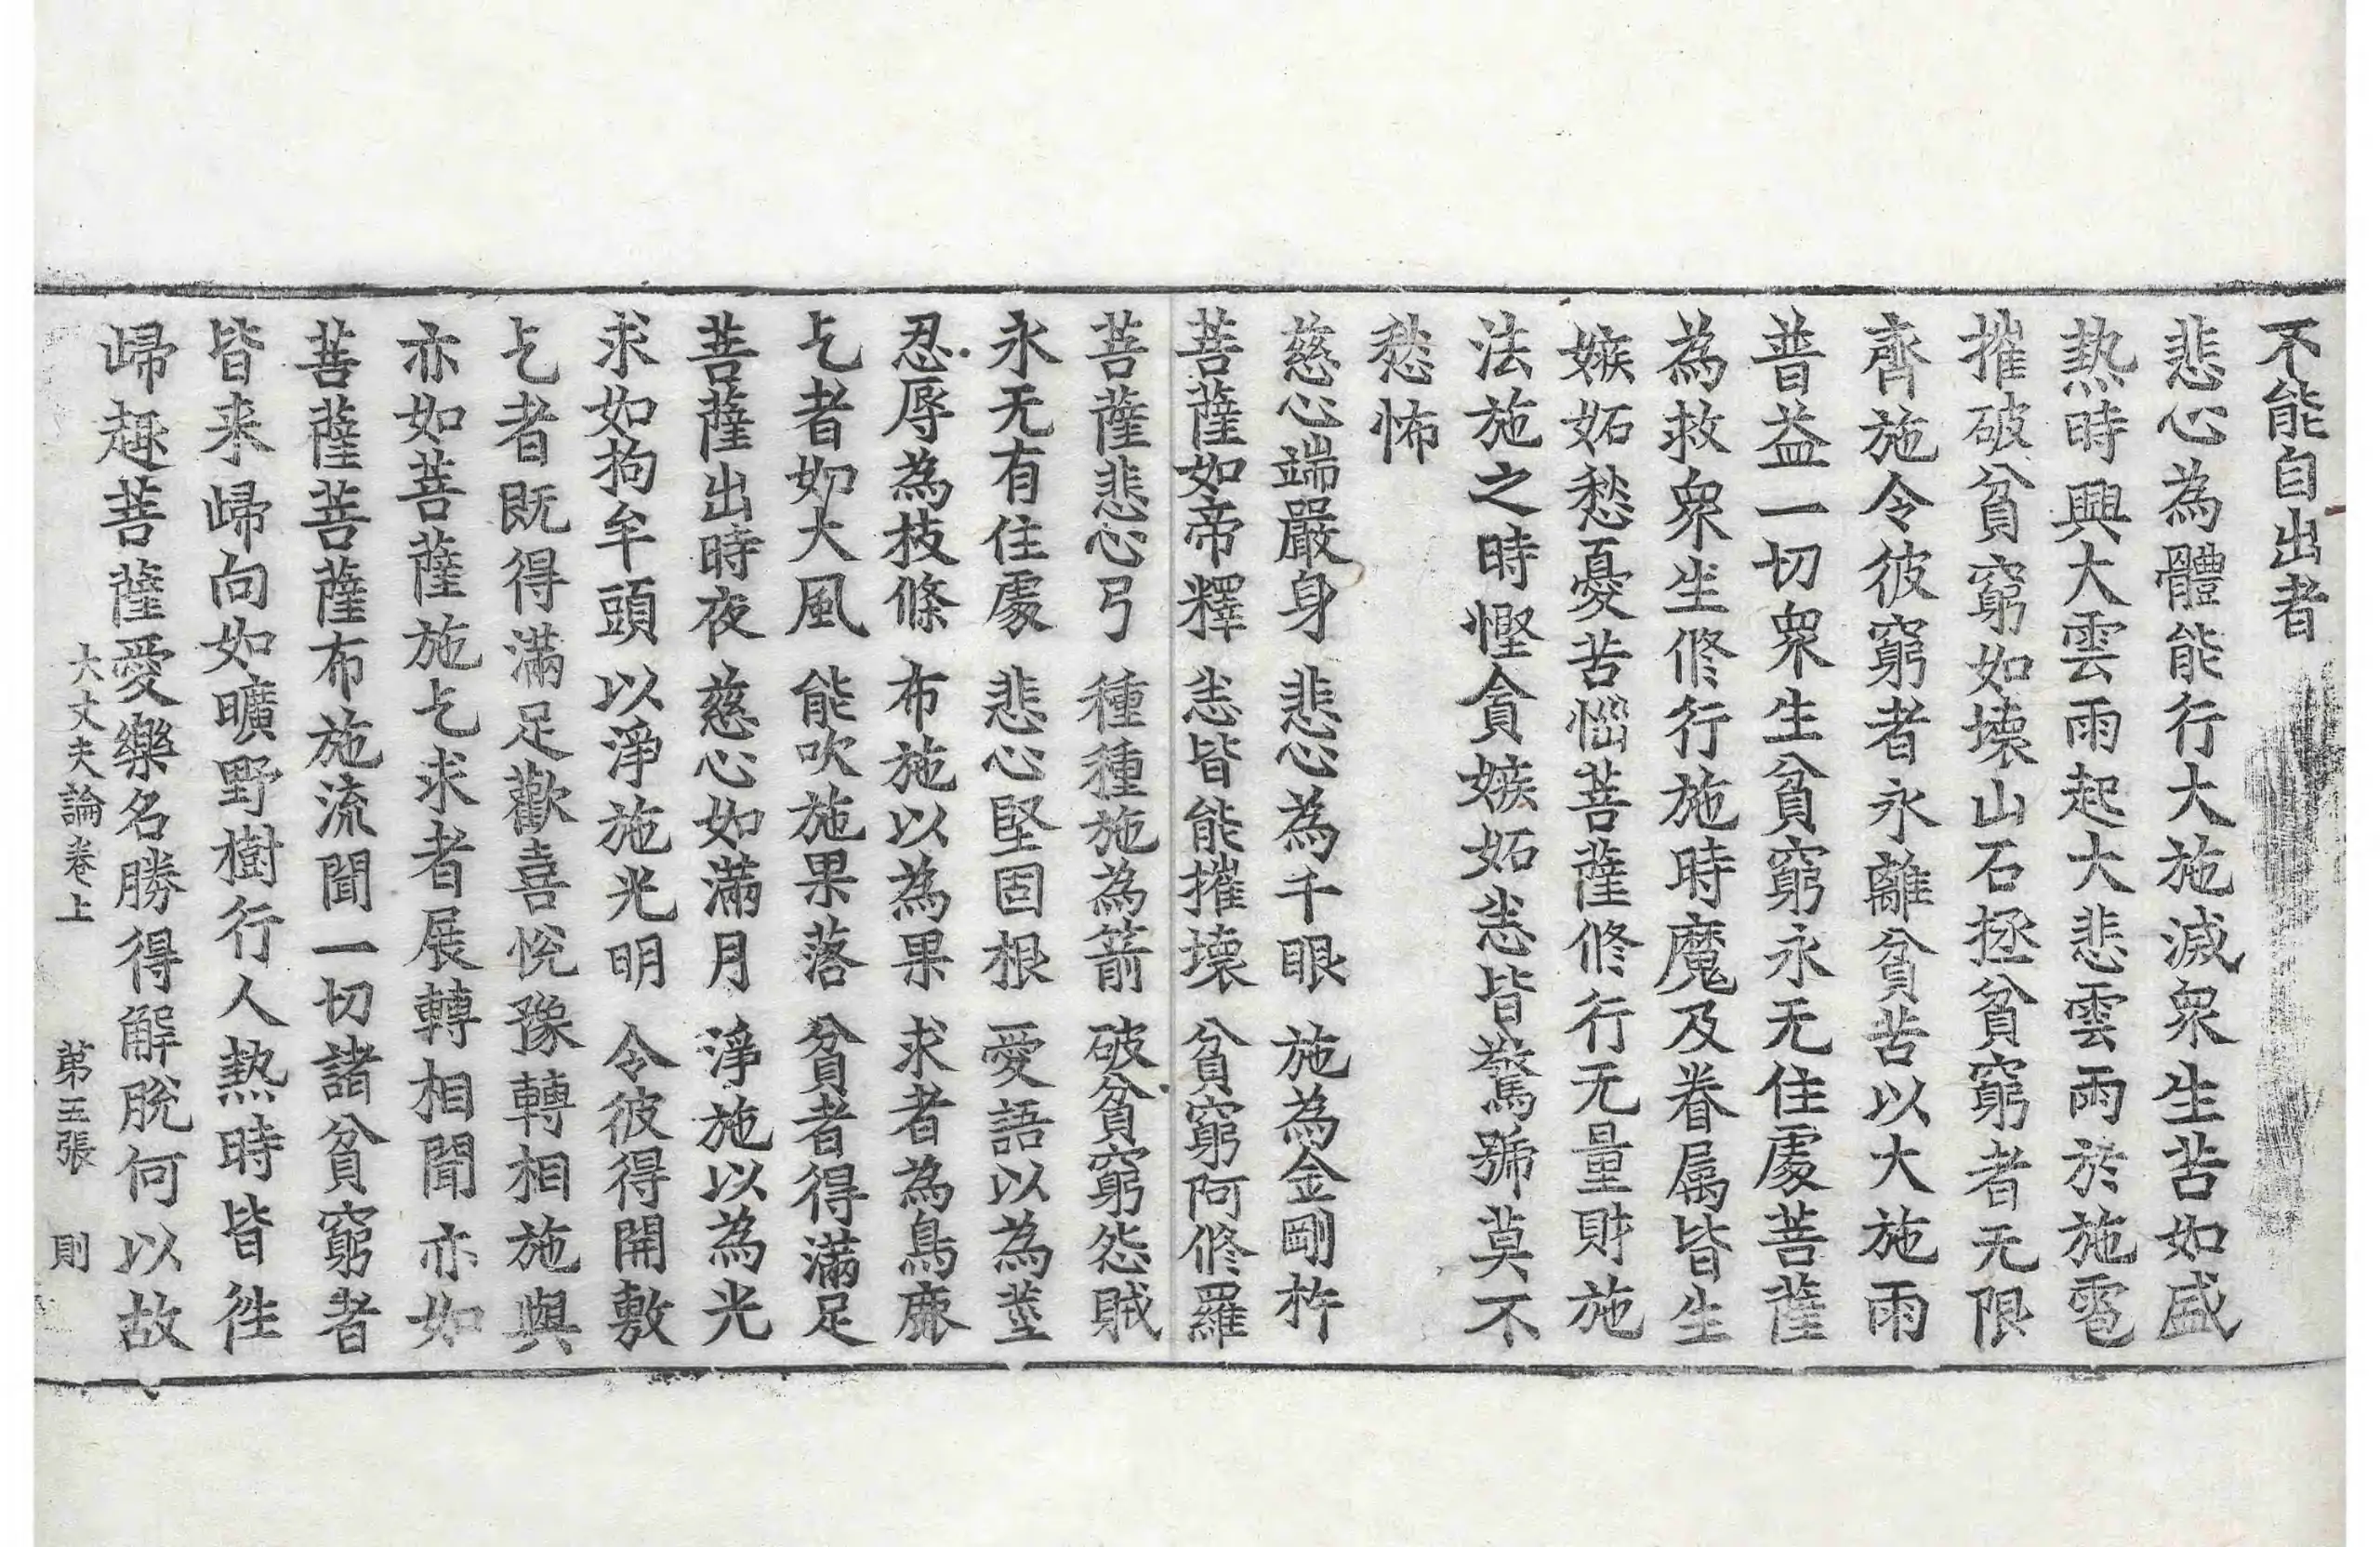 不能自出者
悲心為體能行大施滅衆生苦如盛
熱時興大雲雨起大悲雲雨於施雹
摧破貧窮如壞山石拯貧窮者无限
齊施令彼窮者永離貧苦以大施雨
普益一切衆生貧窮永无住處菩薩
為救衆生修行施時魔及眷属皆生
嫉妬愁憂苦惱菩薩修行无量財施
法施之時慳貪嫉妬恙皆驚號莫不
愁怖
慈心端嚴身　悲心為千眼　施為金剛杵
菩薩如帝釋　恙皆能摧壞　貧窮阿修羅
菩薩悲心弓　種種施為箭　破貧窮怨賊
永无有住處　悲心堅固根　愛語以為莖
忍辱為枝條　布施以為果　求者為鳥鹿
乞者如大風　能吹施果落　貧者得滿足
菩薩出時夜　慈心如滿月　淨施以為光
求如拘牟頭　以淨施光明　令彼得開敷
乞者既得滿足歡喜悅豫轉相施與
亦如菩薩施乞求者展轉相聞亦如
菩薩菩薩布施流聞一切諸貧窮者
皆来歸向如曠野樹行人熱時皆往
歸趣菩薩愛樂名勝得解脫何以故
大丈夫論卷上　第五張　則